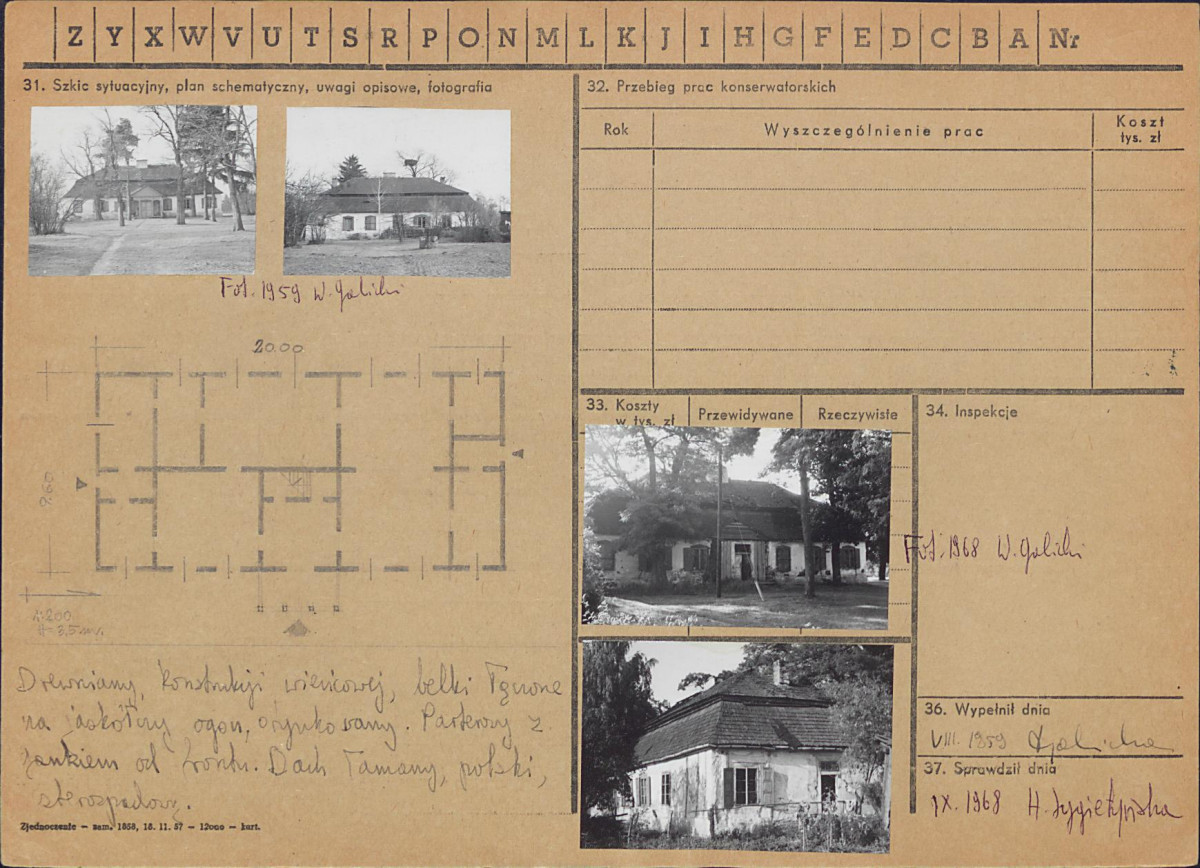 Z Y X W V U T S R P O N M L K J I H G F E D C B A Nr
31. Szkic sytuacyjny, plan schematyczny, uwagi opisowe, fotografia
Fot. 1959 W. Galicki
20.00
9.60
1:200
H = 3,5 m.
Drewniany, konstrukcji wieńcowej, belki łączone
na jaskółczy ogon, otynkowany. Parterowy z
gankiem od frontu. Dach łamany, polski,
czterospadowy.
Zjednoczenie — zam. 1858, 18. 11. 57 — 12000 — kart.
32. Przebieg prac konserwatorskich
Rok
Wyszczególnienie prac
Koszt
tys. zł
33. Koszty
w tys. zł
Przewidywane
Rzeczywiste
34. Inspekcje
Fot. 1968 W. Galicki
36. Wypełnił dnia
VIII. 1959 Galicka
37. Sprawdził dnia
IX. 1968 H.